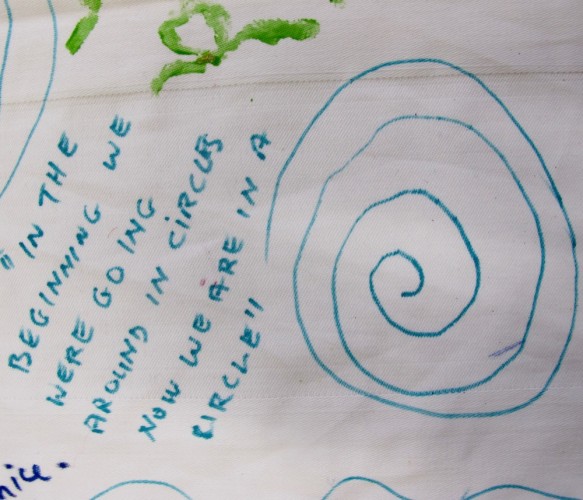 "IN THE
BEGINNING WE
WERE GOING
AROUND IN CIRCLES
NOW WE ARE IN A
CIRCLE"